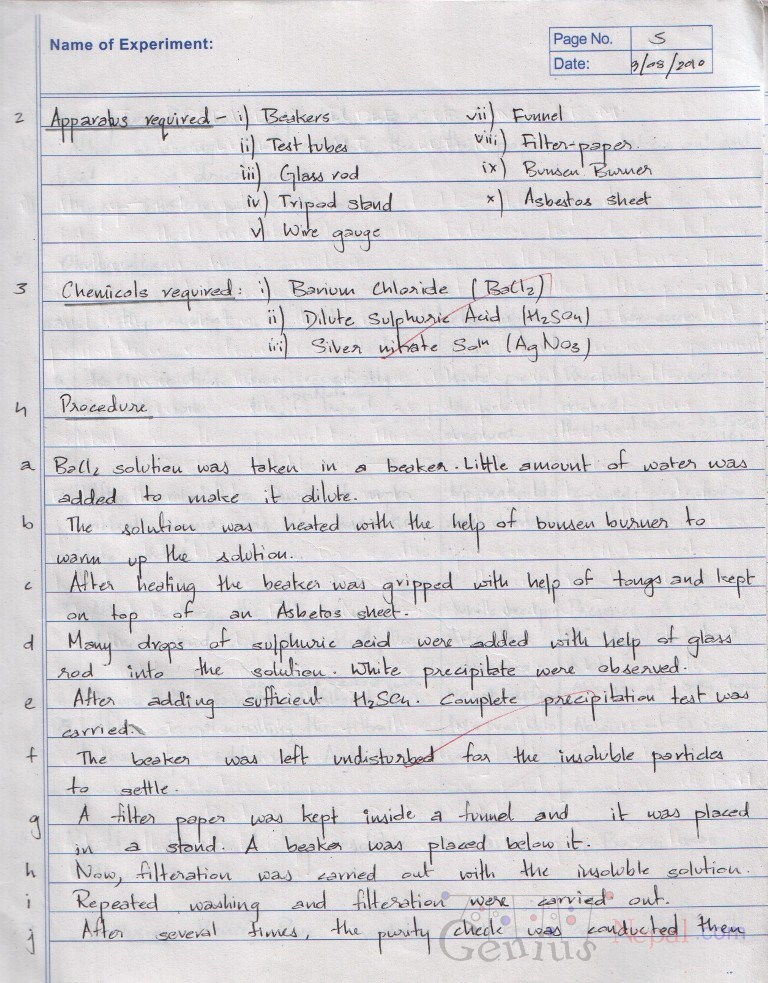 Name of Experiment:
Page No. 5
Date: 3/08/2010
2 Apparatus required - i) Beakers vii) Funnel
ii) Test tubes viii) Filter-paper.
iii) Glass rod ix) Bunsen Burner
iv) Tripod stand x) Asbestos sheet
v) Wire gauge
3 Chemicals required: i) Barium Chloride (BaCl2)
ii) Dilute Sulphuric Acid (H2SO4)
iii) Silver nitrate Soln (AgNO3)
4 Procedure
a BaCl2 solution was taken in a beaker. Little amount of water was
added to make it dilute.
b The solution was heated with the help of bunsen burner to
warm up the solution.
c After heating the beaker was gripped with help of tongs and kept
on top of an Asbetos sheet.
d Many drops of sulphuric acid were added with help of glass
rod into the solution. White precipitate were observed.
e After adding sufficient H2SO4. Complete precipitation test was
carried.
f The beaker was left undisturbed for the insoluble particles
to settle.
g A filter paper was kept inside a funnel and it was placed
in a stand. A beaker was placed below it.
h Now, filteration was carried out with the insoluble solution.
i Repeated washing and filteration were carried out.
j After several times, the purity check was conducted them
Genius Nepal.com